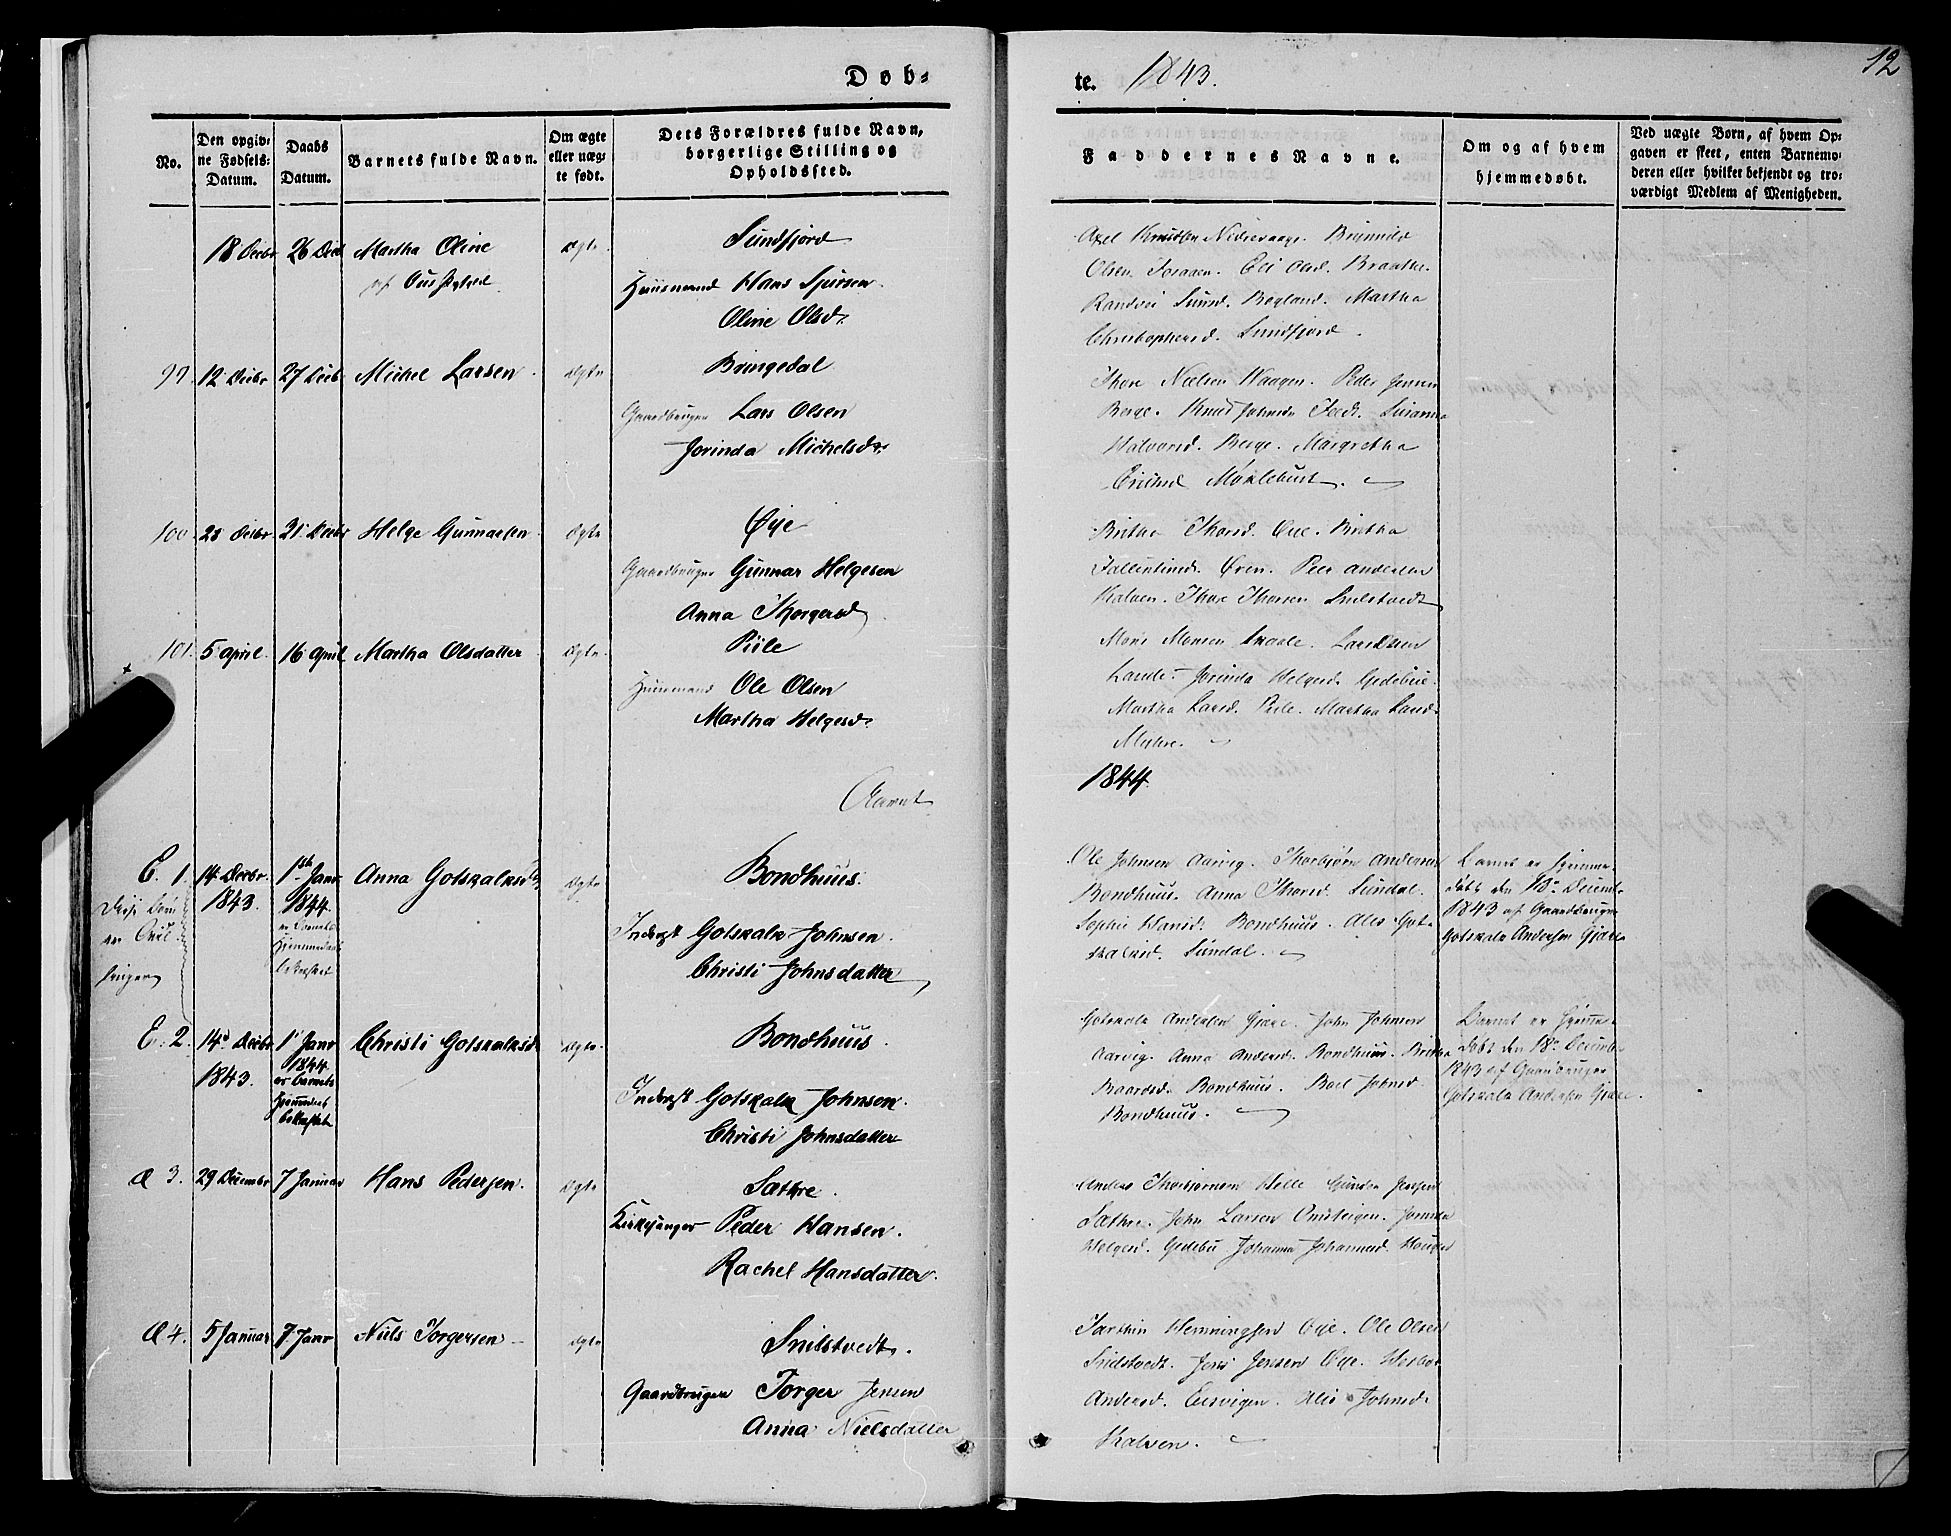 Døb-
No.
Den opgiv-
ne Fødsels-
Datum.
Daabs
Datum.
Barnets fulde Navn.
Om ægte
eller uæg-
te født.
Dets Forældres fulde Navn,
borgerlige Stilling og
Opholdssted.
18 Decbr 26 Decb Martha Oline ægte Sundfjord
af
Huusmand Hans Sjursen
Oline Olsd.
99. 12 Decbr 27 Decb Michel Larsen ægte Bringedal
Gaardbruger Lars Olsen
Jorinda Michelsdr.
100 Decbr Decbr Helge Gunnarsen ægte Øye
Gaardbruger Gunnar Helgesen
Anna Thorgersd
101. 5 april. 16 april Martha Olsdatter ægte Piile
Huusmand Ole Olsen
Martha Helgesd.
Aaret
E. 1. 14 Decbr. 1ste Janr Anna Gotskalksd ægte Bondhuus.
1843. 1844.
er Barnets
Hjemmedaab
bekræftet
Disse Børn
ere Tvil-
linger
Inderst Gotskalk Johnsen.
Christi Johnsdatter
E. 2. 14 Decbr 1 Janr Christi Gotskalksd ægte Bondhuus.
1843. 1844
er Barnets
Hjemmedaab
bekræftet
Inderst Gotskalk Johnsen.
Christi Johnsdatter
Æ 3. 29 Decembr 7 Januar Hans Pedersen. ægte Sæthre.
Kirkesanger Peder Hansen.
Rachel Hansdatter.
Æ 4. 5 Januar 7 Janr Niels Torgersen ægte Snilstvedt.
Gaardbruger Torger Jensen
Anna Nielsdatter
te. 1843.
12
Faddernes Navne.
Om og af hvem
hjemmedøbt.
Ved uægte Børn, af hvem Op-
gaven er skeet, enten Barnemo-
deren eller hvilket bekjendt og tro-
værdigt Medlem af Menigheden.
Axel Knudsen Nedrevaage. Brynnild
Olsen. Eli Olsd. Braathe.
Randvei Sunnd. Bogland. Martha
Christophersd. Sundfjord.
Thore Nielsen Waagen. Peder Jensen
Berge. Knud Johnsen Tvedt. Susanna
Halvorsd. Berge. Margretha
Ericksd Moxlebust.
Britha Thorsd. Øye. Britha
Peer Andersen
Kalven. Thore Thorsen Snilstvedt
Mons Monsen Skaale. Lars Olsen
Lande. Jorinda Helgesd. Gjedebøe.
Martha Larsd. Piile. Martha Larsd.
1844.
Ole Johnsen Aarvig. Thorbjørn Andersen
Bondhuus. Anna Thorsd. Sundal.
Sophie Hansd. Bondhuus. Alis Got-
skalksd. Sundal.
Barnet er hjemme-
døbt den 18de Decemb.
1843 af Gaardbruger
Gotskalk Andersen Gjære
Gotskalk Andersen Gjære. John Johnsen
Aarvig. Anna Andersd. Bondhuus. Britha
Baardsd. Bondhuus. Boel Johnsd
Bondhuus.
Barnet er hjemme-
døbt den 18de Decemb.
1843 af Gaardbruger
Gotskalk Andersen Gjære.
Anders Thorbjørnsen Helle
Sæthre. John Larsen Omsteigen. Jorinda
Helgesd. Gjedebø Johanna Johannesd. Houge
Henningsen Øye. Ole Olsen
Snilstvedt. Jens Jensen Øye.
Andersd. Eirsvigen. Alis Johnsd.
Kalven.